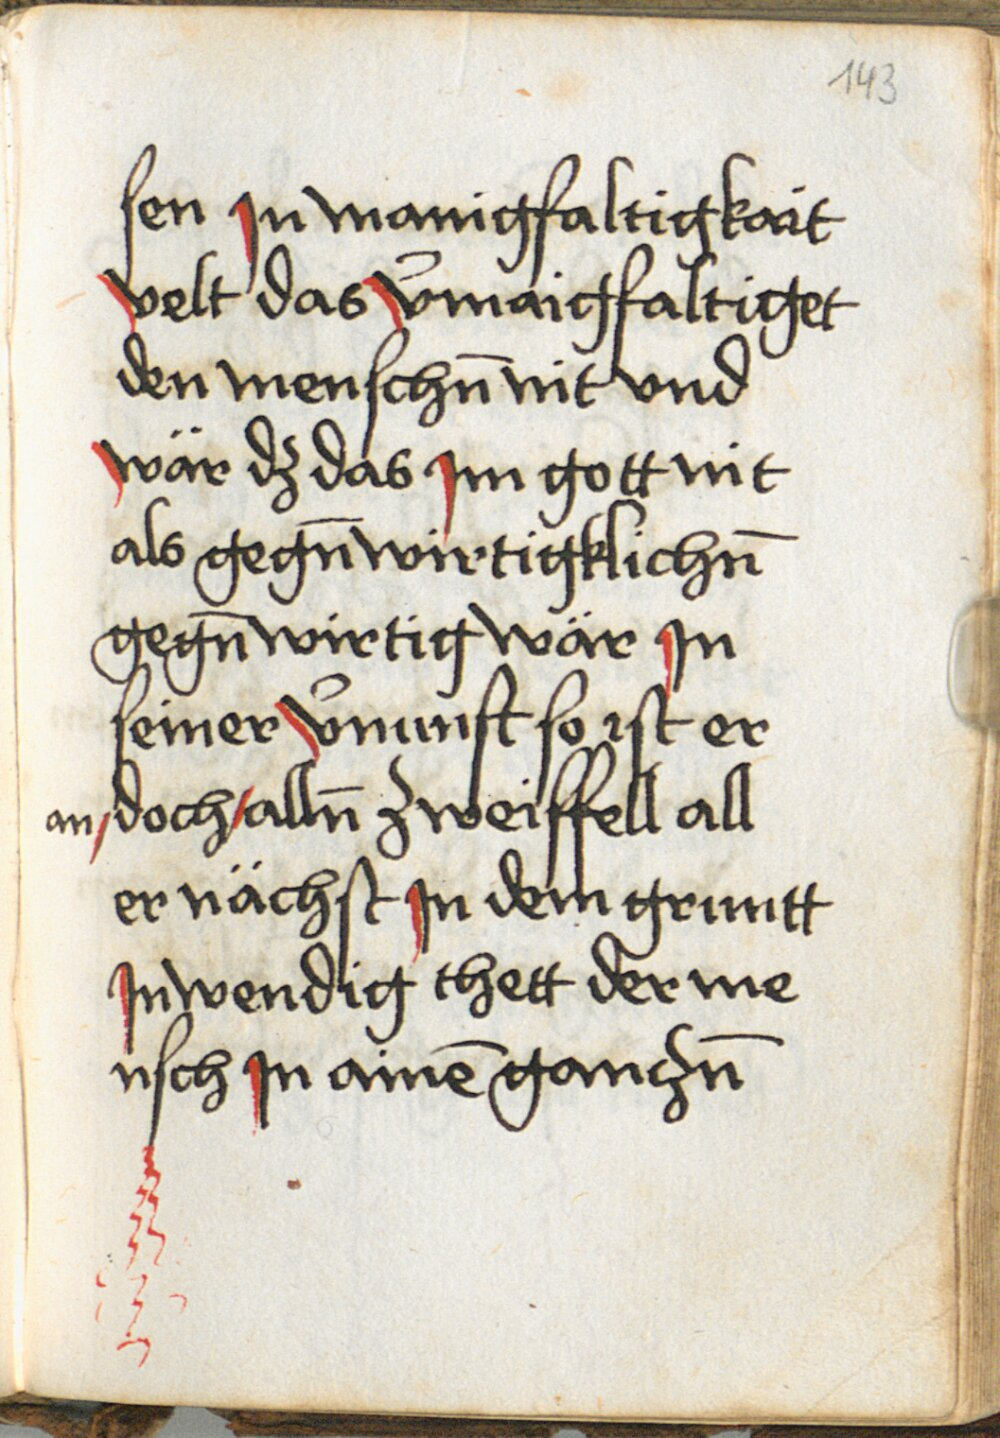 143
sen Jn manigfaltigkait
velt das v̄maigfaltiget
den menschn̄ nit vnd
wär dz das Jm gott nit
als gegn̄wirtigklichn̄
gegn̄wirtig wär Jn
seiner v̄nunft so ist er
an/doch/alln̄ zweiffell all
er nächst Jn dem gruntt
Jnwendig thett der me
nsch Jn ainē ganczn̄